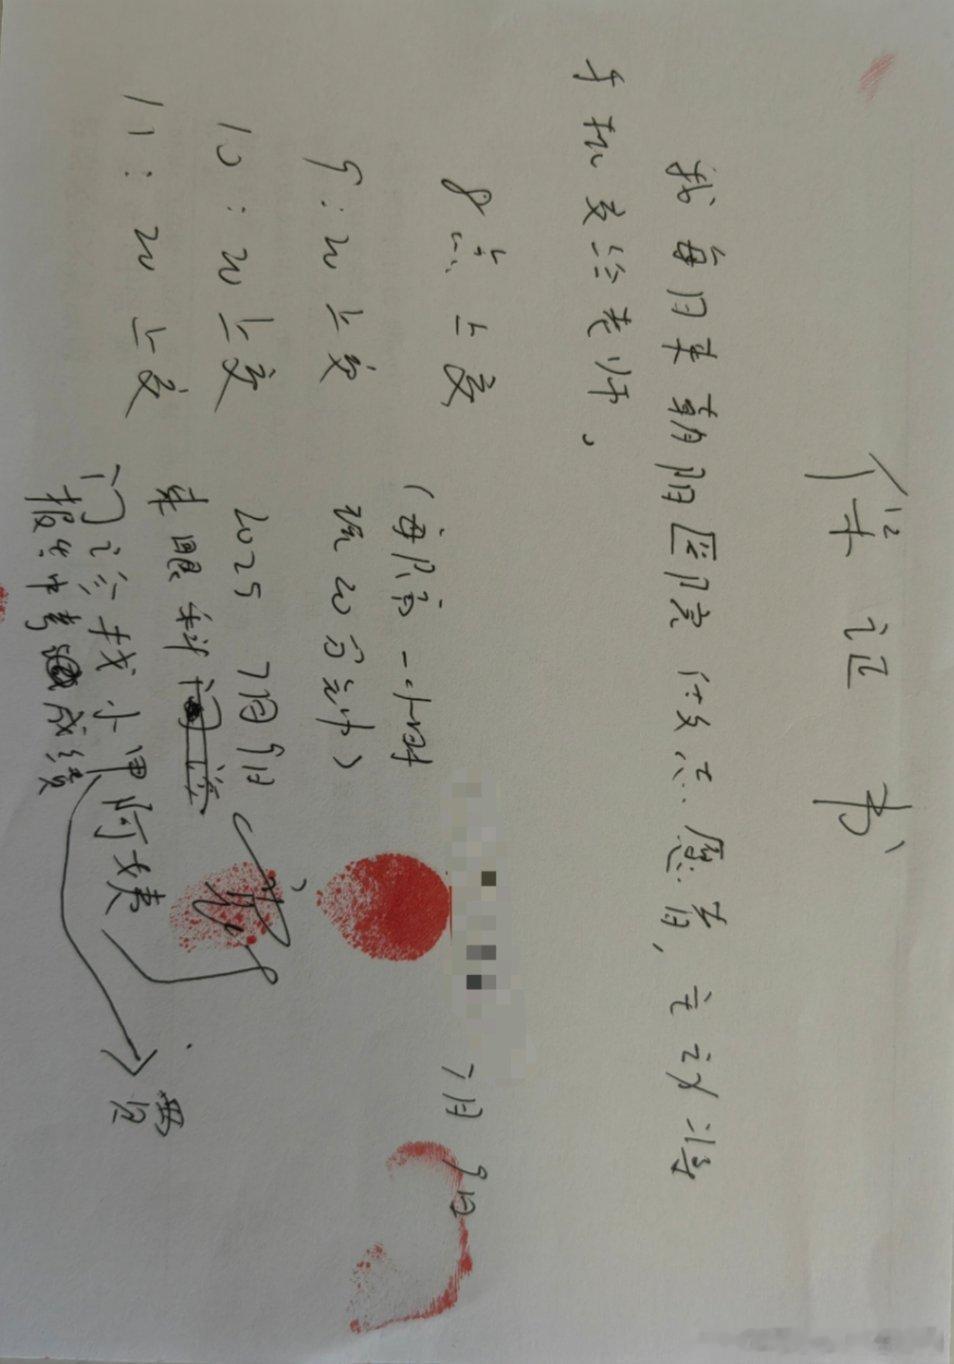 保证书
我每日来朝阳医院做志愿者,主动将
手机交给老师。
8点上交
9:20上交
10:20上交
11:20上交
(每隔一小时
玩20分钟)
7月9日
2025 7月9日
来眼科
门诊找小甲阿姨
报告中考成绩